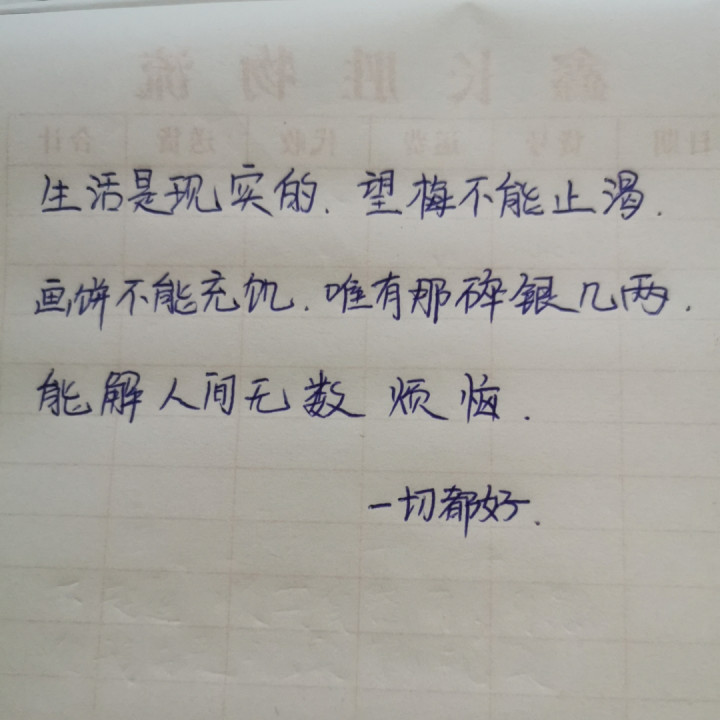 鑫长胜物流
日期 货号 运费 代收 送货 合计
生活是现实的.望梅不能止渴.
画饼不能充饥.唯有那碎银几两.
能解人间无数烦恼.
一切都好.